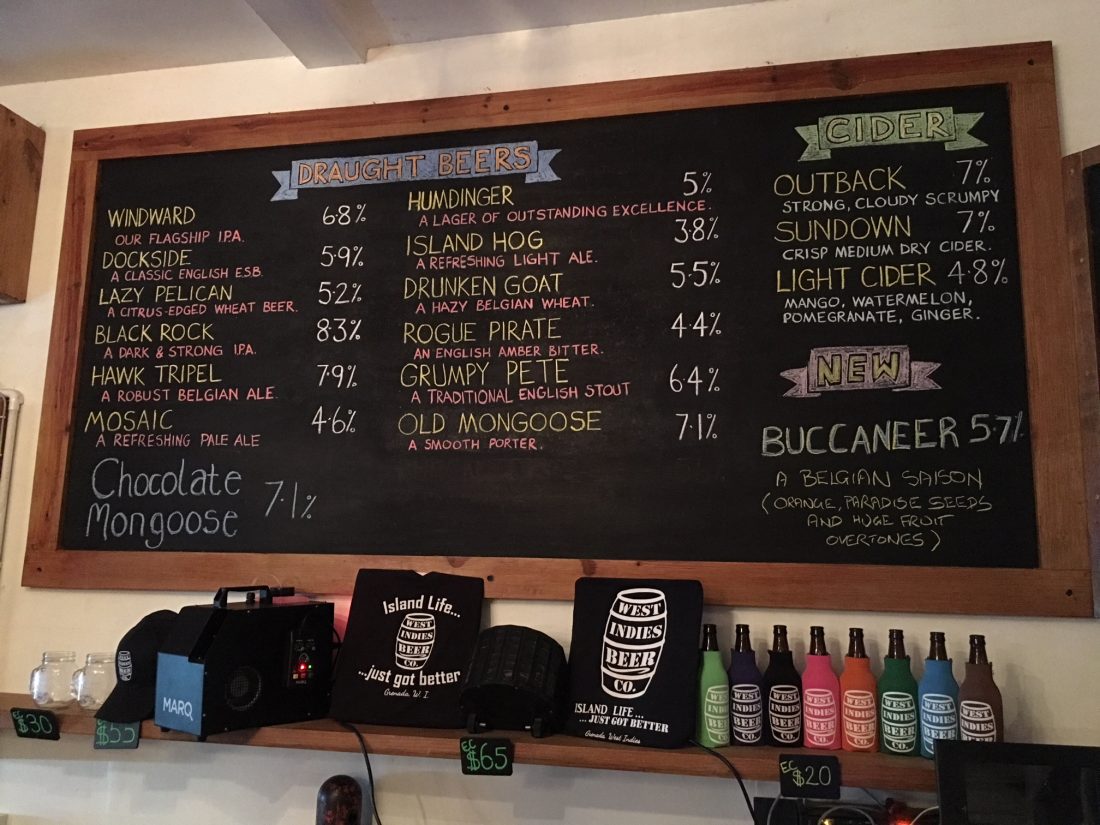 DRAUGHT BEERS
WINDWARD 6.8%
OUR FLAGSHIP I.P.A.
DOCKSIDE 5.9%
A CLASSIC ENGLISH E.S.B.
LAZY PELICAN 5.2%
A CITRUS-EDGED WHEAT BEER.
BLACK ROCK 8.3%
A DARK & STRONG I.P.A.
HAWK TRIPEL 7.9%
A ROBUST BELGIAN ALE.
MOSAIC 4.6%
A REFRESHING PALE ALE
Chocolate
Mongoose 7.1%
HUMDINGER 5%
A LAGER OF OUTSTANDING EXCELLENCE.
ISLAND HOG 3.8%
A REFRESHING LIGHT ALE.
DRUNKEN GOAT 5.5%
A HAZY BELGIAN WHEAT.
ROGUE PIRATE 4.4%
AN ENGLISH AMBER BITTER.
GRUMPY PETE 6.4%
A TRADITIONAL ENGLISH STOUT
OLD MONGOOSE 7.1%
A SMOOTH PORTER.
CIDER
OUTBACK 7%
STRONG, CLOUDY SCRUMPY
SUNDOWN 7%
CRISP MEDIUM DRY CIDER.
LIGHT CIDER 4.8%
MANGO, WATERMELON,
POMEGRANATE, GINGER.
NEW
BUCCANEER 5.7%
A BELGIAN SAISON
(ORANGE, PARADISE SEEDS
AND HUGE FRUIT
OVERTONES)
MARQ
MARQ
Island Life...
WEST
INDIES
BEER
CO.
...just got better
Grenada W. I.
WEST
INDIES
BEER
CO.
ISLAND LIFE...
...JUST GOT BETTER
Grenada West Indies
WEST
INDIES
BEER
CO.
WEST
INDIES
BEER
CO.
WEST
INDIES
BEER
CO.
WEST
INDIES
BEER
CO.
WEST
INDIES
BEER
CO.
WEST
INDIES
BEER
CO.
WEST
INDIES
BEER
WEST
INDIES
BEER
EC
$30
EC
$55
EC
$65
EC
$20